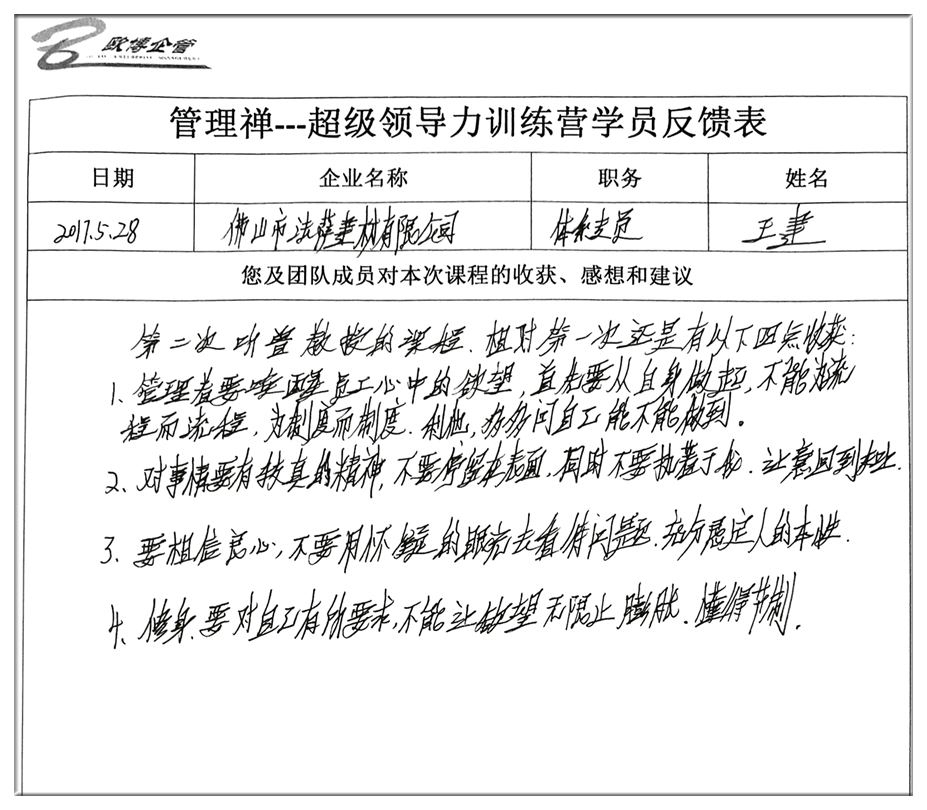 欧博企管
管理禅---超级领导力训练营学员反馈表
日期 企业名称 职务 姓名
2017.5.28 佛山市法萨建材有限公司 体系专员 王建
您及团队成员对本次课程的收获、感想和建议
第二次听曾教授的课程.相对第一次还是有以下四点收获:
1、管理者要唤醒员工心中的欲望,首先要从自身做起,不能为流
程而流程,为制度而制度.利他,多多问自己能不能做到。
2、对事情要有较真的精神,不要停留在表面,同时不要执着于,让意回到
3、要相信良心,不要用怀疑的眼光去看待问题.充分肯定人的本性.
4、修身.要对自己有所要求,不能让欲望无限止膨胀.懂得节制.